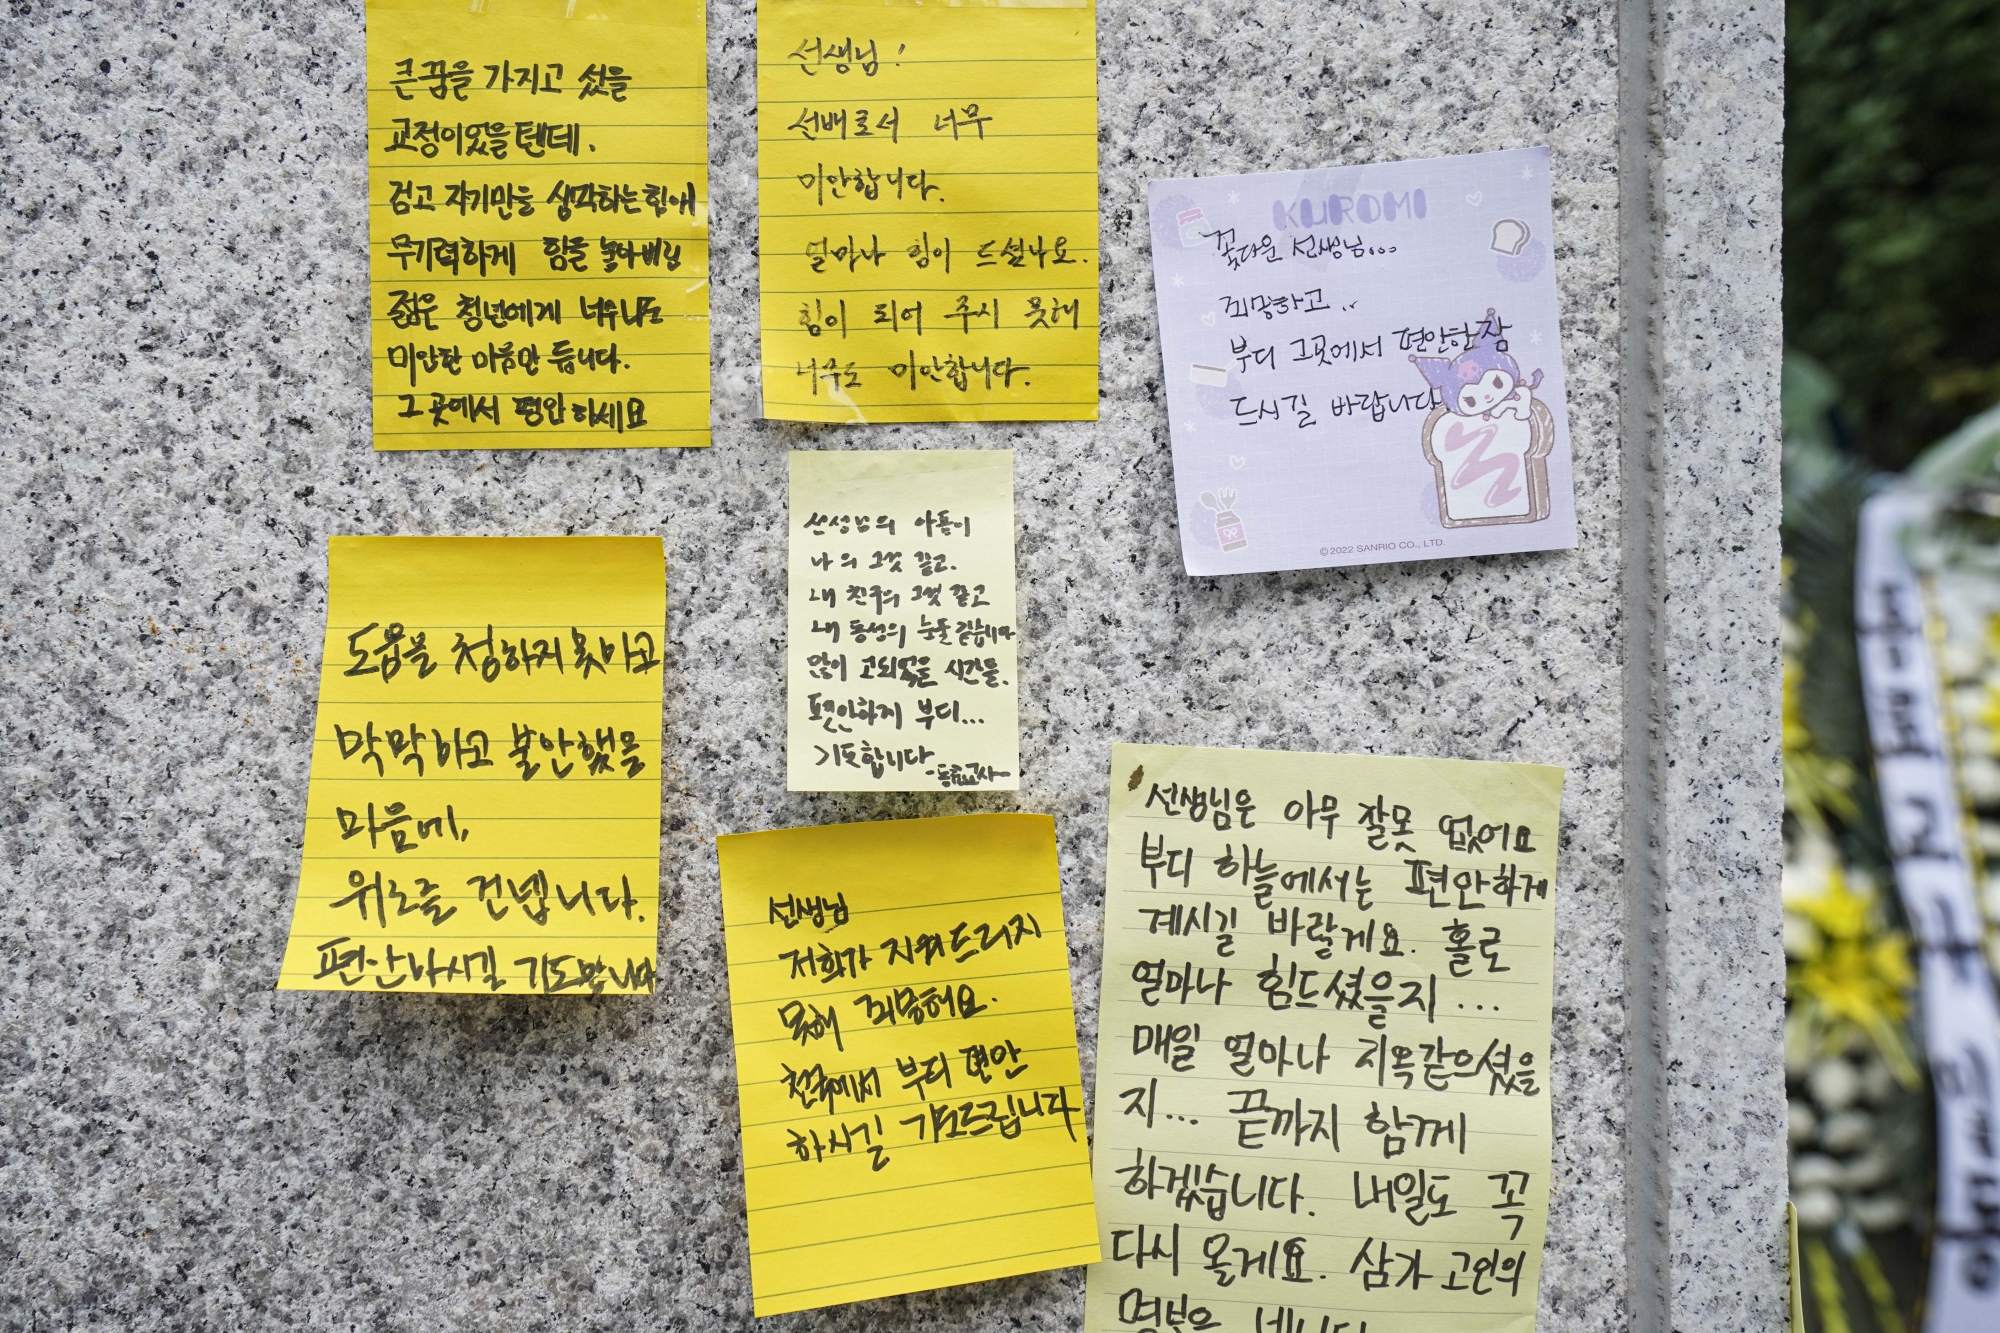 큰꿈을 가지고 섰을
교정이었을텐데.
검고 자기만을 생각하는 힘에
무기력하게 힘을 놓아버린
젊은 청년에게 너무나도
미안한 마음만 듭니다.
그 곳에서 평안하세요
선생님!
선배로서 너무
미안합니다.
얼마나 힘이 드셨나요.
힘이 되어 주시 못해
너무도 미안합니다.
KUROMI
꽃다운 선생님...
죄송하고..
부디 그곳에서 편안한 잠
드시길 바랍니다
©2022 SANRIO CO., LTD.
선생님의 아픔이
나의 그것 같고.
내 친구의 그것 같고
내 동생의 눈물 같습니다
많이 고되었을 시간을.
편안하지 부디...
기도합니다
-동료교사-
도움을 청하지 못하고
막막하고 불안했을
마음에,
위로를 건넵니다.
편안하시길 기도합니다
선생님
저희가 지켜드리지
못해 죄송해요.
천국에서 부디 편안
하시길 기도드립니다
선생님은 아무 잘못 없어요
부디 하늘에서는 편안하게
계시길 바랄게요. 홀로
얼마나 힘드셨을지...
매일 얼마나 지옥같으셨을
지... 끝까지 함께
하겠습니다. 내일도 꼭
다시 올게요. 삼가 고인의
명복을 빕니다